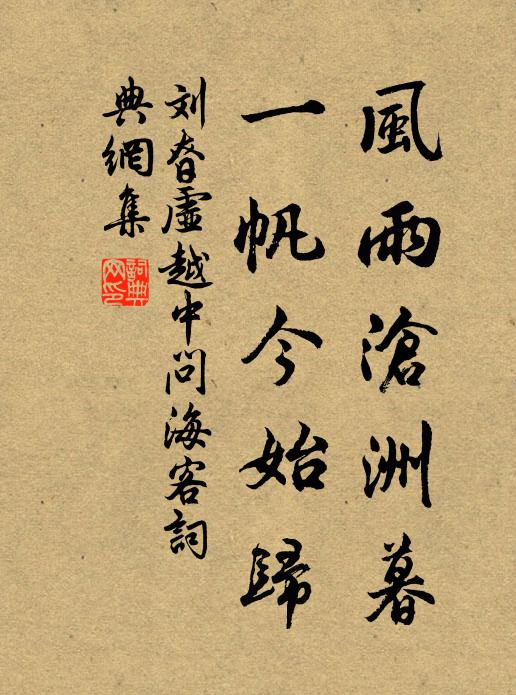 風雨滄洲暮
一帆今始歸
刘眘虛越中問海客詞
典網集
詞典
网印